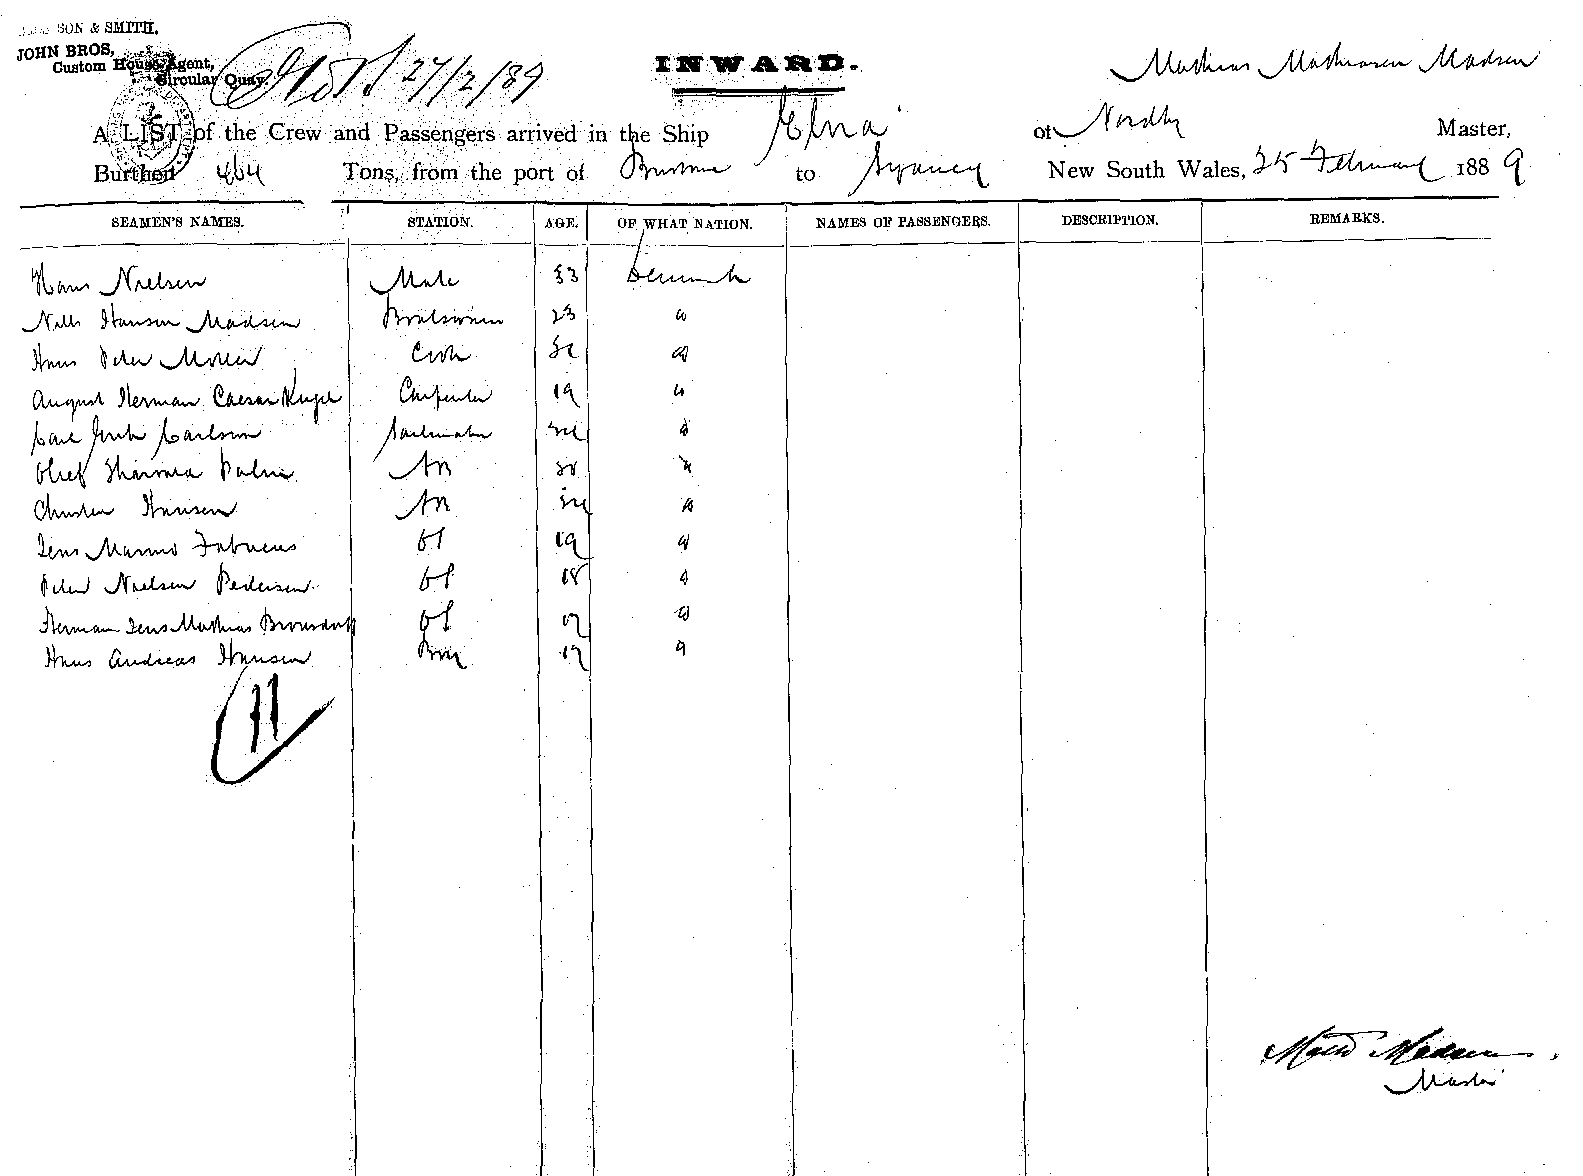 SON & SMITH.
JOHN BROS,
Custom House Agent,
Circular Quay.
27/2/89
INWARD.
Mathias Mathiasen Madsen
A LIST of the Crew and Passengers arrived in the Ship Elna of Nordby Master,
Burthen 464 Tons, from the port of Brisbane to Sydney New South Wales, 25 February 1889
SEAMEN'S NAMES. STATION. AGE. OF WHAT NATION. NAMES OF PASSENGERS. DESCRIPTION. REMARKS.
Hans Nielsen Mate 33 Denmark
Niels Hansen Madsen Boatswain 23 "
Hans Peter Moller Cook "
August Herman Caesar Kugel Carpenter 19 "
Carl Carlson Sailmaker "
Olief Palm AB "
Christen Hansen AB "
Jens Marius Fabricius OS 19 "
Peter Nielsen Pedersen OS 18 "
Herman Jens Mathias Brorsdorff OS 17 "
Hans Andreas Hansen Boy 17 "
11
Maths Madsen
Master